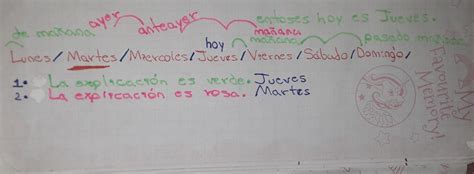 ayer
anteayer
entoses hoy es Jueves.
de mañana
hoy
mañana
pasado mañana
Lunes/Martes/Miercoles/Jueves/Viernes/Sábado/Domingo/
1. La explicación es verde. Jueves
2. La explicación es rosa. Martes
My
Favourite
Memory!